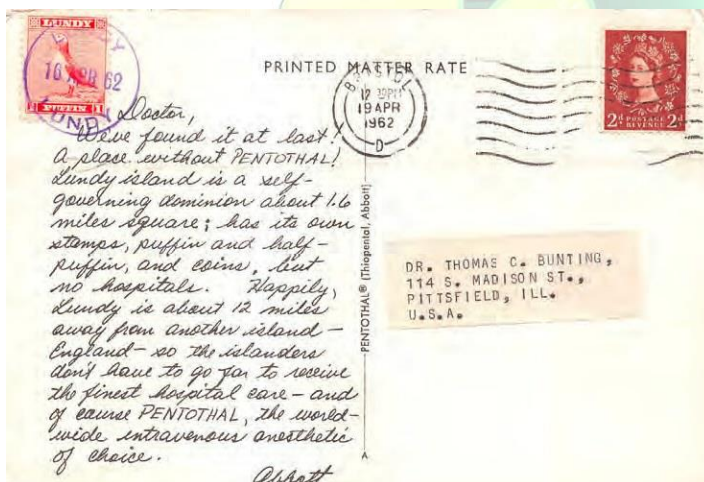 LUNDY
LUNDY
16 APR 62
1 PUFFIN 1
LUNDY
PRINTED MATTER RATE
BRISTOL
12 30PM
19 APR
1962
D
2D POSTAGE REVENUE 2D
Doctor,
We've found it at last!
A place without PENTOTHAL!
Lundy island is a self-
governing dominion about 1.6
miles square; has its own
stamps, puffin and half-
puffin, and coins, but
no hospitals. Happily,
Lundy is about 12 miles
away from another island —
England — so the islanders
don't have to go far to receive
the finest hospital care — and
of course PENTOTHAL, the world-
wide intravenous anesthetic
of choice.
Abbott
PENTOTHAL® (Thiopental, Abbott)
A
DR. THOMAS C. BUNTING,
114 S. MADISON ST.,
PITTSFIELD, ILL.
U.S.A.